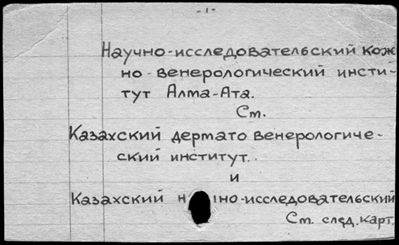 - 1 -
Научно-исследовательский кож
но-венерологический инсти-
тут Алма-Ата.
См.
Казахский дермато венерологиче-
ский институт.
и
Казахский н но-исследовательский
См. след. карт.